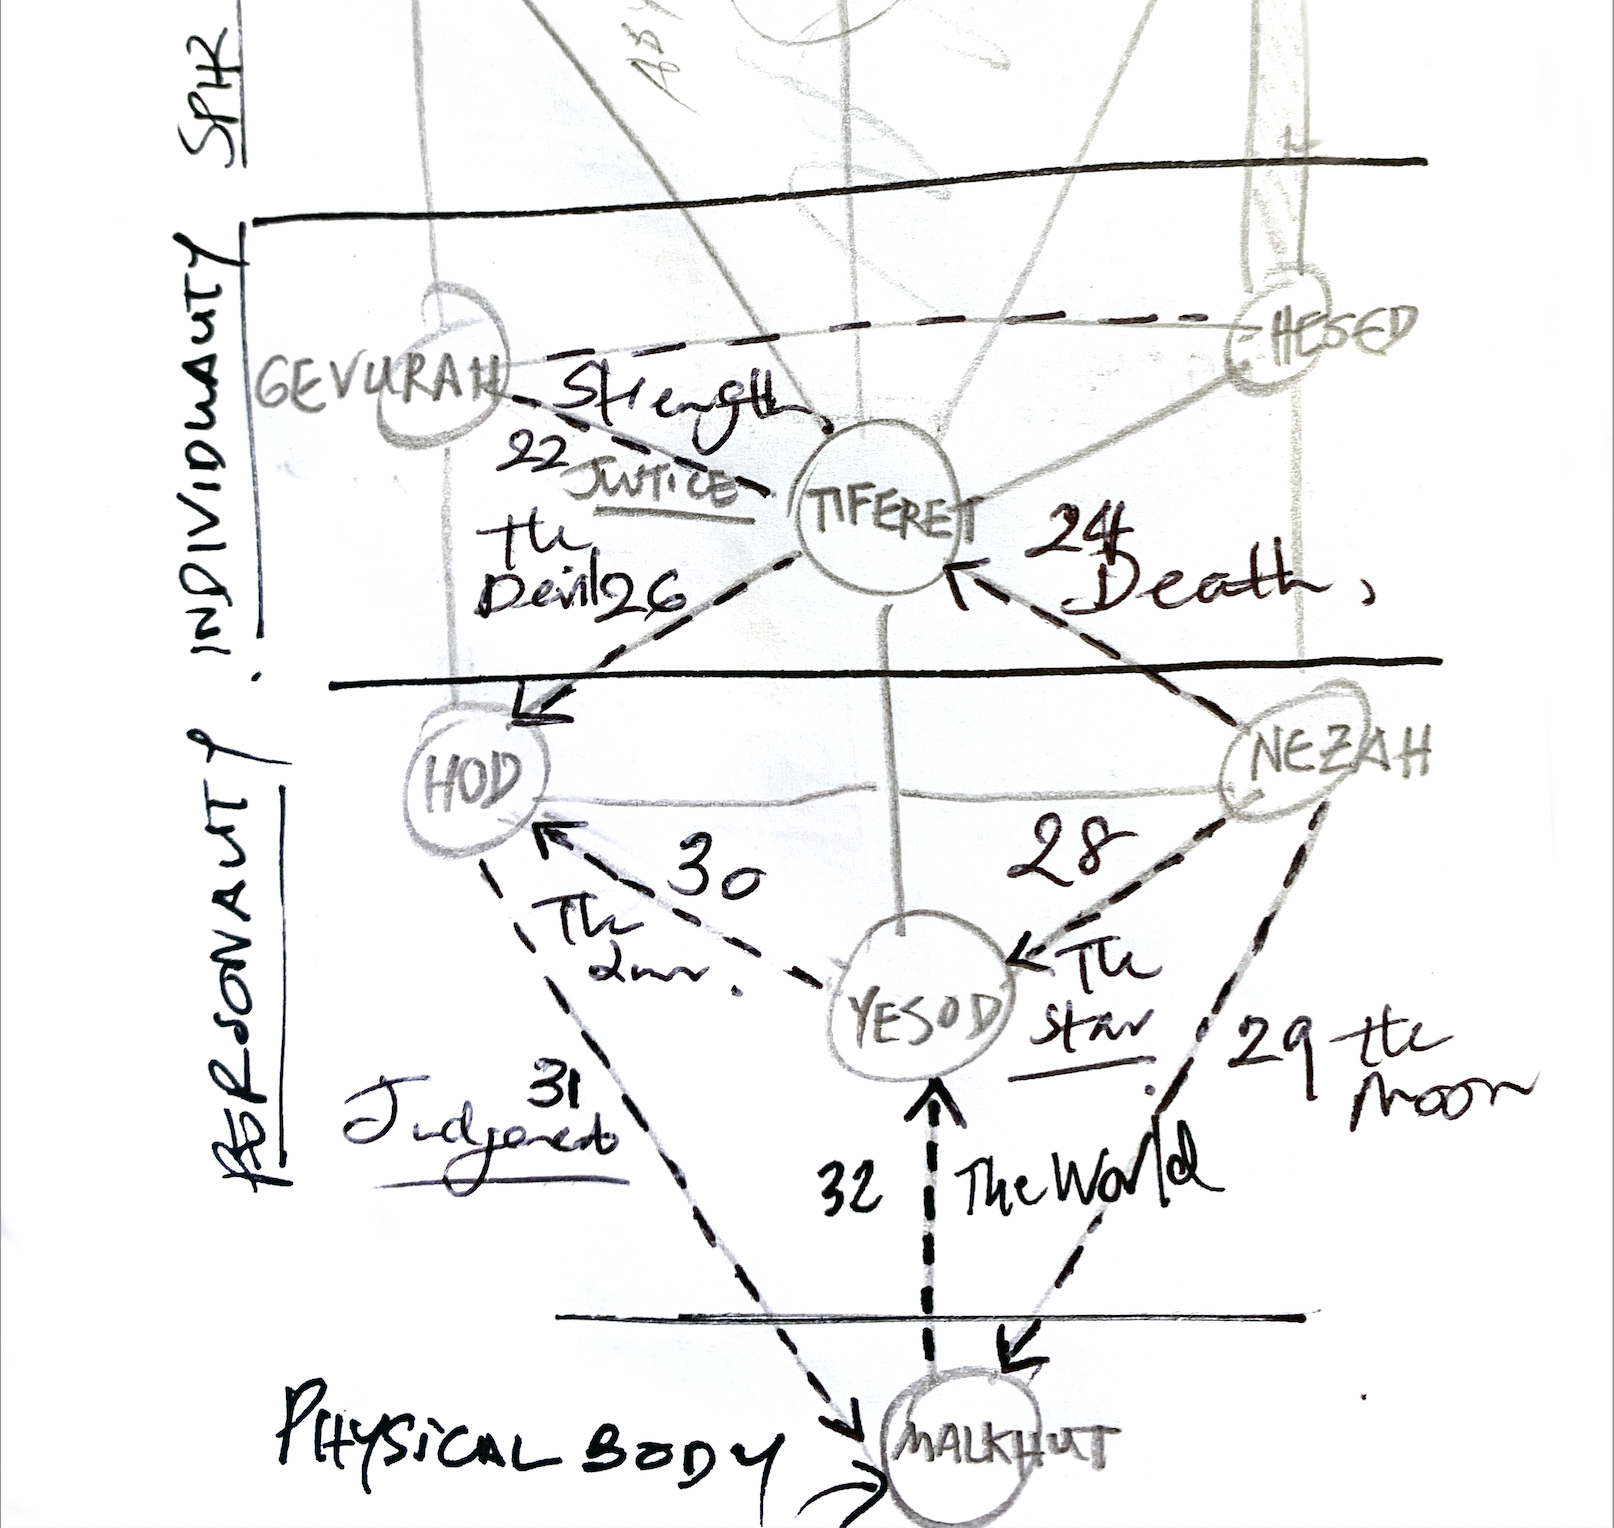 SPIR
ABY
INDIVIDUALITY
GEVURAH
HESED
Strength
22
JUSTICE
TIFERET
The
Devil 26
24
Death,
PERSONALITY
HOD
NEZAH
30
The
Sun.
28
The
Star
YESOD
29 the
Moon
31
Judgement
32 The World
PHYSICAL BODY
MALKHUT